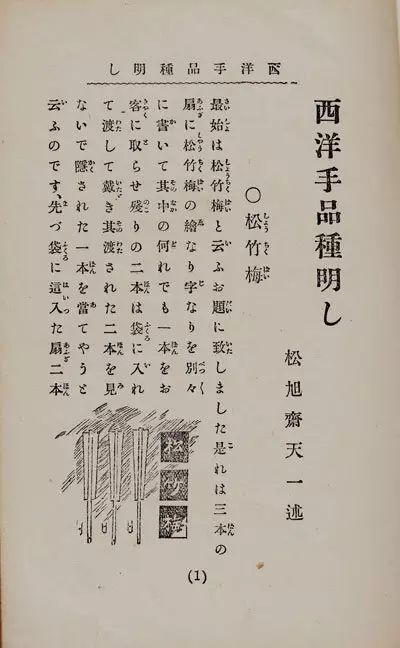 西洋手品種明し
西洋手品種明し
松旭齋天一述
○松竹梅
最始は松竹梅と云ふお題に致しました是れは三本の
扇に松竹梅の繪なり字なりを別々
に書いて其中の何れでも一本をお
客に取らせ殘りの二本は袋に入れ
て渡して戴き其渡された二本を見
ないで隱された一本を當てやうと
云ふのです、先づ袋に這入た扇二本
松
竹
梅
(1)